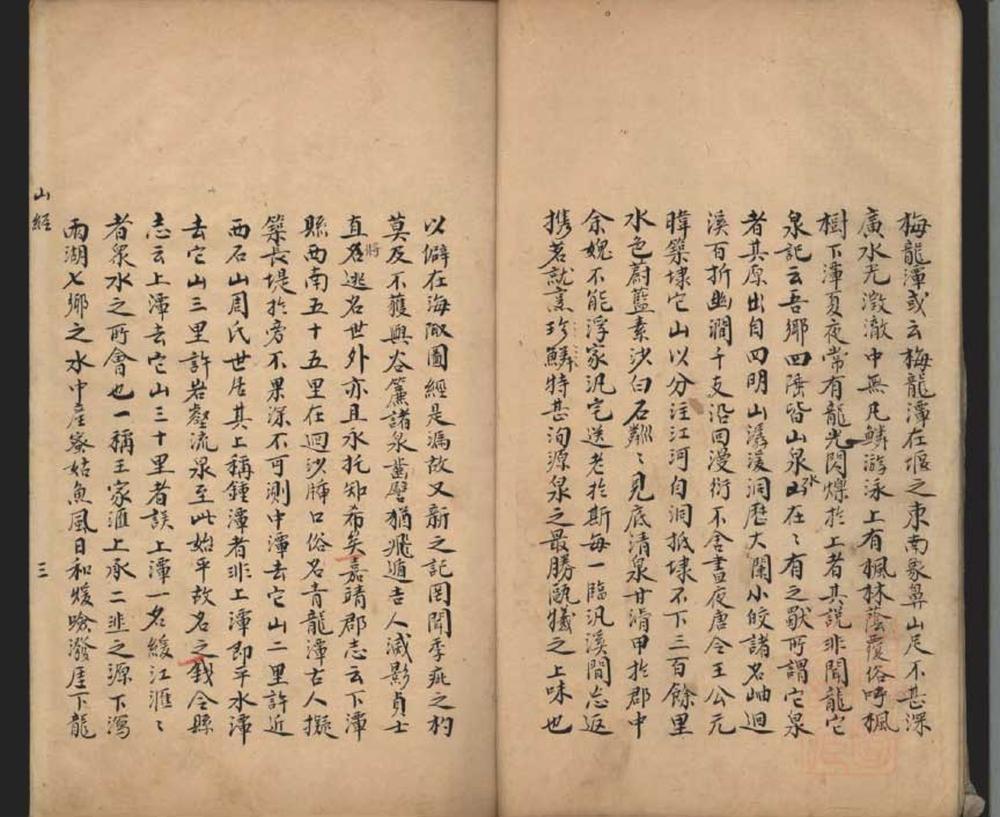 梅龍潭或云梅龍潭在堰之東南象鼻山尺不甚深
廣水尤澂澈中無凡鱗游泳上有楓林蔭覆俗呼楓
樹下潭夏夜常有龍光閃爍於上者其說非聞龍它
泉記云吾鄉四陲皆山泉水在在有之獸所謂它泉
者其原出自四明山潺湲洞歷大闌小皎諸名岫迴
溪百折幽澗千支沿回漫衍不舍晝夜唐令王公元
暐築埭它山以分注江河自洞抵埭不下三百餘里
水色蔚藍素沙白石粼粼見底清泉甘滑甲於郡中
余媿不能浮家汎宅送老於斯每一臨汎溪間忘返
携茗就烹珍鱗特甚洵源泉之最勝甌犧之上味也
以僻在海陬圖經是漏故又新之記罔聞季疵之杓
莫及不獲與谷簾諸泉齒譬猶飛遁吉人滅影貞士
直將逃名世外亦且永托知希矣嘉靖郡志云下潭
縣西南五十五里在迴沙牐口俗名青龍潭古人擬
築長堤於旁不果深不可測中潭去它山二里許近
西石山周氏世居其上稱鍾潭者非上潭即平水潭
去它山三里許岩壑流泉至此始平故名之錢令縣
志云上潭去它山三十里者誤上潭一名緩江滙滙
者衆水之所會也一稱王家滙上承二韭之源下瀉
兩湖七鄉之水中產寮姑魚風日和煖噞潑厓下龍
山經
三